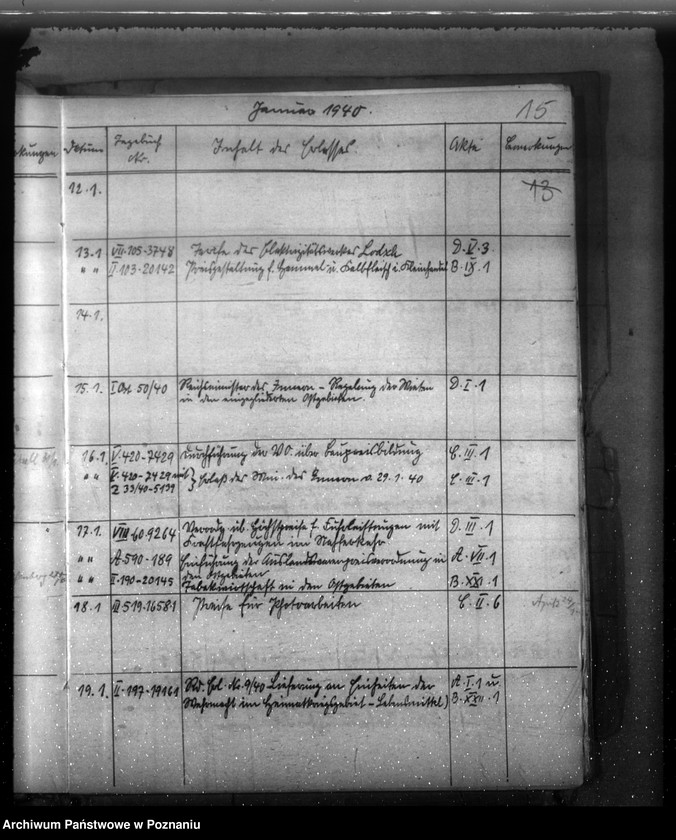 Januar 1940. 15
kungen Datum Tagebuch Nr. Inhalt des Erlasses. Akte Bemerkungen
12.1. 13
13.1 VII-105-3748 Tarife des Elektrizitätswerkes Lodsch D. V. 3
" " II 103-20142 Preisgestaltung f. Hammel u. Kalbfleisch i. Kleinhandel B. IX. 1
14.1.
15.1. I Ost 50/40 Reichsminister des Innern - Regelung der Mieten D. I. 1
in den eingegliederten Ostgebieten.
16.1. V. 420-7429 Durchführung der VO. über Baupreisbildung C. III. 1
" " V. 420-7429 mit } Erlaß des Min. des Innern v. 29.1.40 C. III. 1
Z 33/40-5139
17.1. VIII 60 9264 Verordg. üb. Höchstpreise f. Fuhrleistungen mit D. III. 1
Kraftfahrzeugen im Nahverkehr
" " A-590-189 Einführung der Auslandswarenpreisverordnung in A. VII. 1
den Ostgebieten
" " II-190-20145 Tabakwirtschaft in den Ostgebieten B. XXI. 1
18.1 III-519-16581 Preise für Photoarbeiten C. II. 6
19.1. II-197-19161 Rd. Erl. Nr. 9/40 Lieferung an Einheiten der A. I. 1 u
Wehrmacht im Heimatkriegsgebiet - Lebensmittel) B. XXII. 1
Archiwum Państwowe w Poznaniu